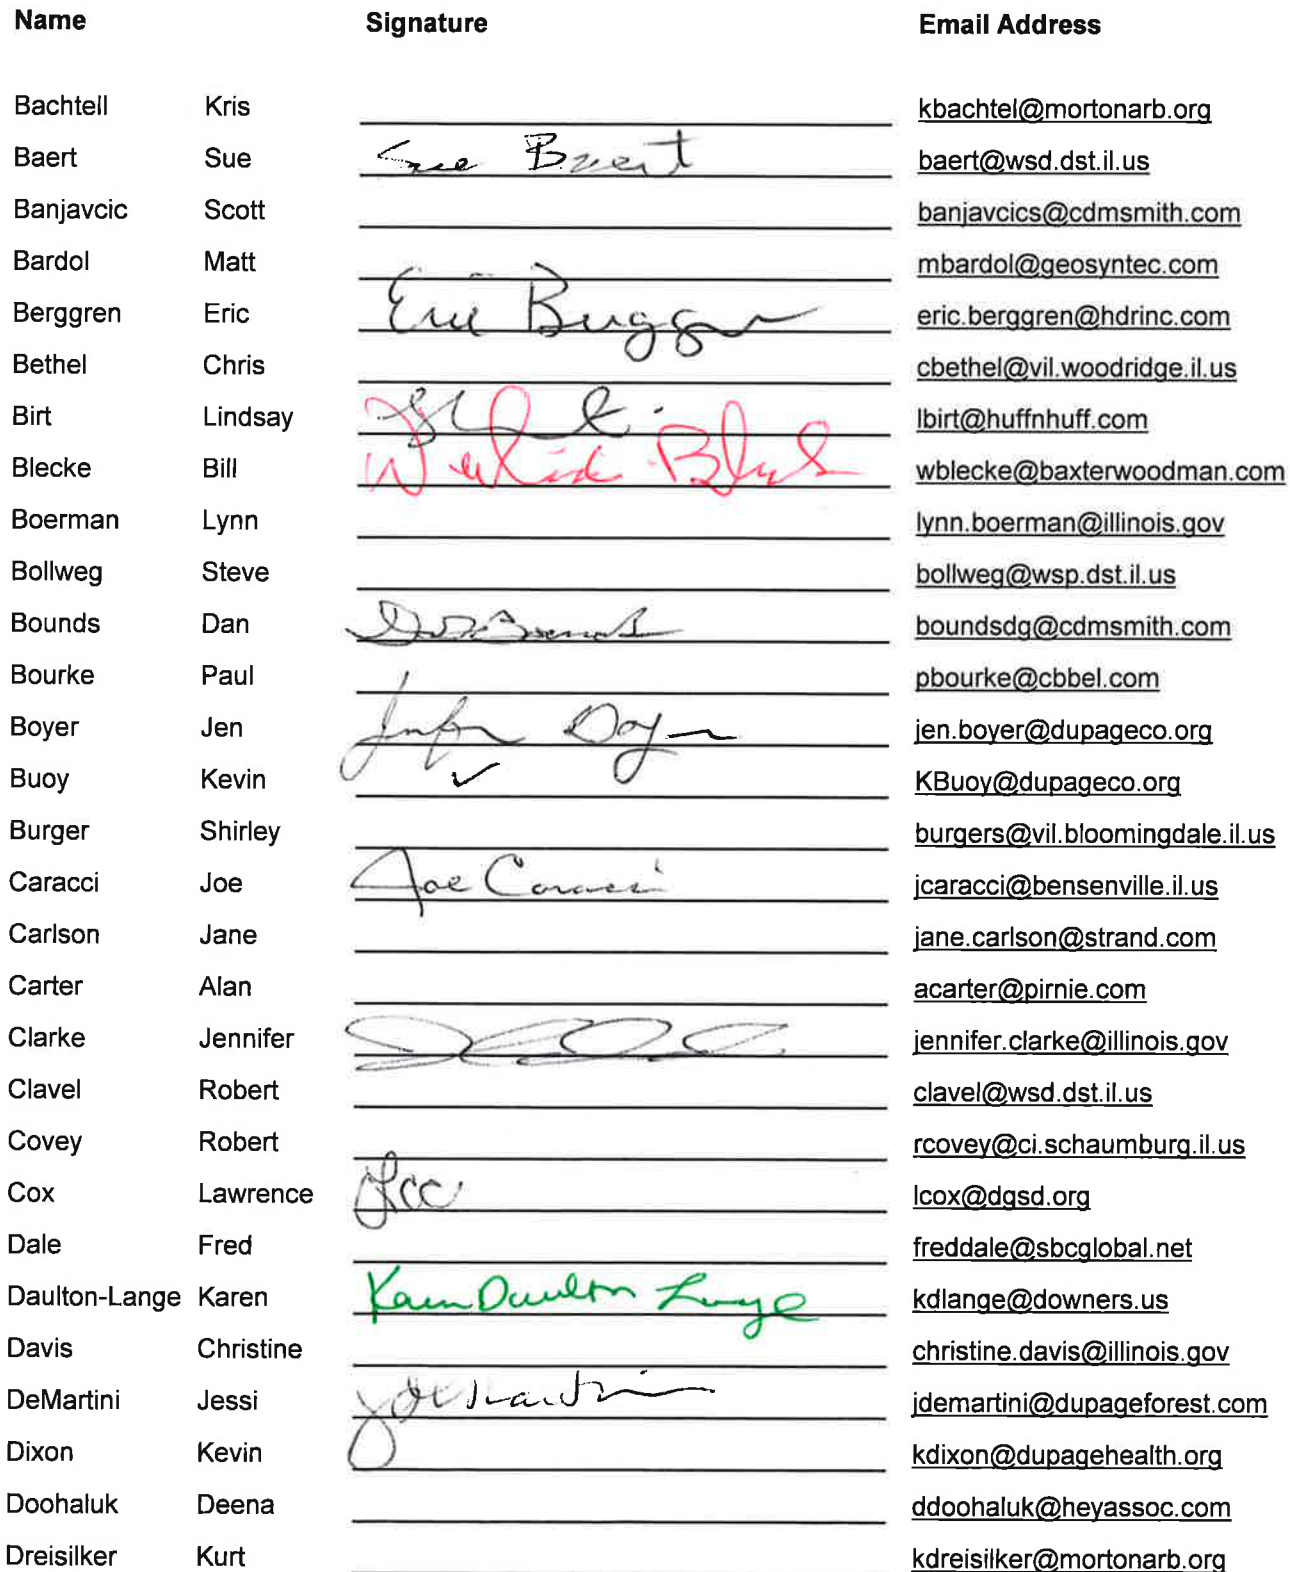 Name Signature Email Address
Bachtell Kris kbachtel@mortonarb.org
Baert Sue Sue Baert baert@wsd.dst.il.us
Banjavcic Scott banjavcics@cdmsmith.com
Bardol Matt mbardol@geosyntec.com
Berggren Eric Eric Berggren eric.berggren@hdrinc.com
Bethel Chris cbethel@vil.woodridge.il.us
Birt Lindsay lbirt@huffnhuff.com
Blecke Bill wblecke@baxterwoodman.com
Boerman Lynn lynn.boerman@illinois.gov
Bollweg Steve bollweg@wsp.dst.il.us
Bounds Dan boundsdg@cdmsmith.com
Bourke Paul pbourke@cbbel.com
Boyer Jen jen.boyer@dupageco.org
Buoy Kevin ✓ KBuoy@dupageco.org
Burger Shirley burgers@vil.bloomingdale.il.us
Caracci Joe Joe Caracci jcaracci@bensenville.il.us
Carlson Jane jane.carlson@strand.com
Carter Alan acarter@pirnie.com
Clarke Jennifer jennifer.clarke@illinois.gov
Clavel Robert clavel@wsd.dst.il.us
Covey Robert rcovey@ci.schaumburg.il.us
Cox Lawrence lcox@dgsd.org
Dale Fred freddale@sbcglobal.net
Daulton-Lange Karen Karen Daulton Lange kdlange@downers.us
Davis Christine christine.davis@illinois.gov
DeMartini Jessi jdemartini@dupageforest.com
Dixon Kevin kdixon@dupagehealth.org
Doohaluk Deena ddoohaluk@heyassoc.com
Dreisilker Kurt kdreisilker@mortonarb.org